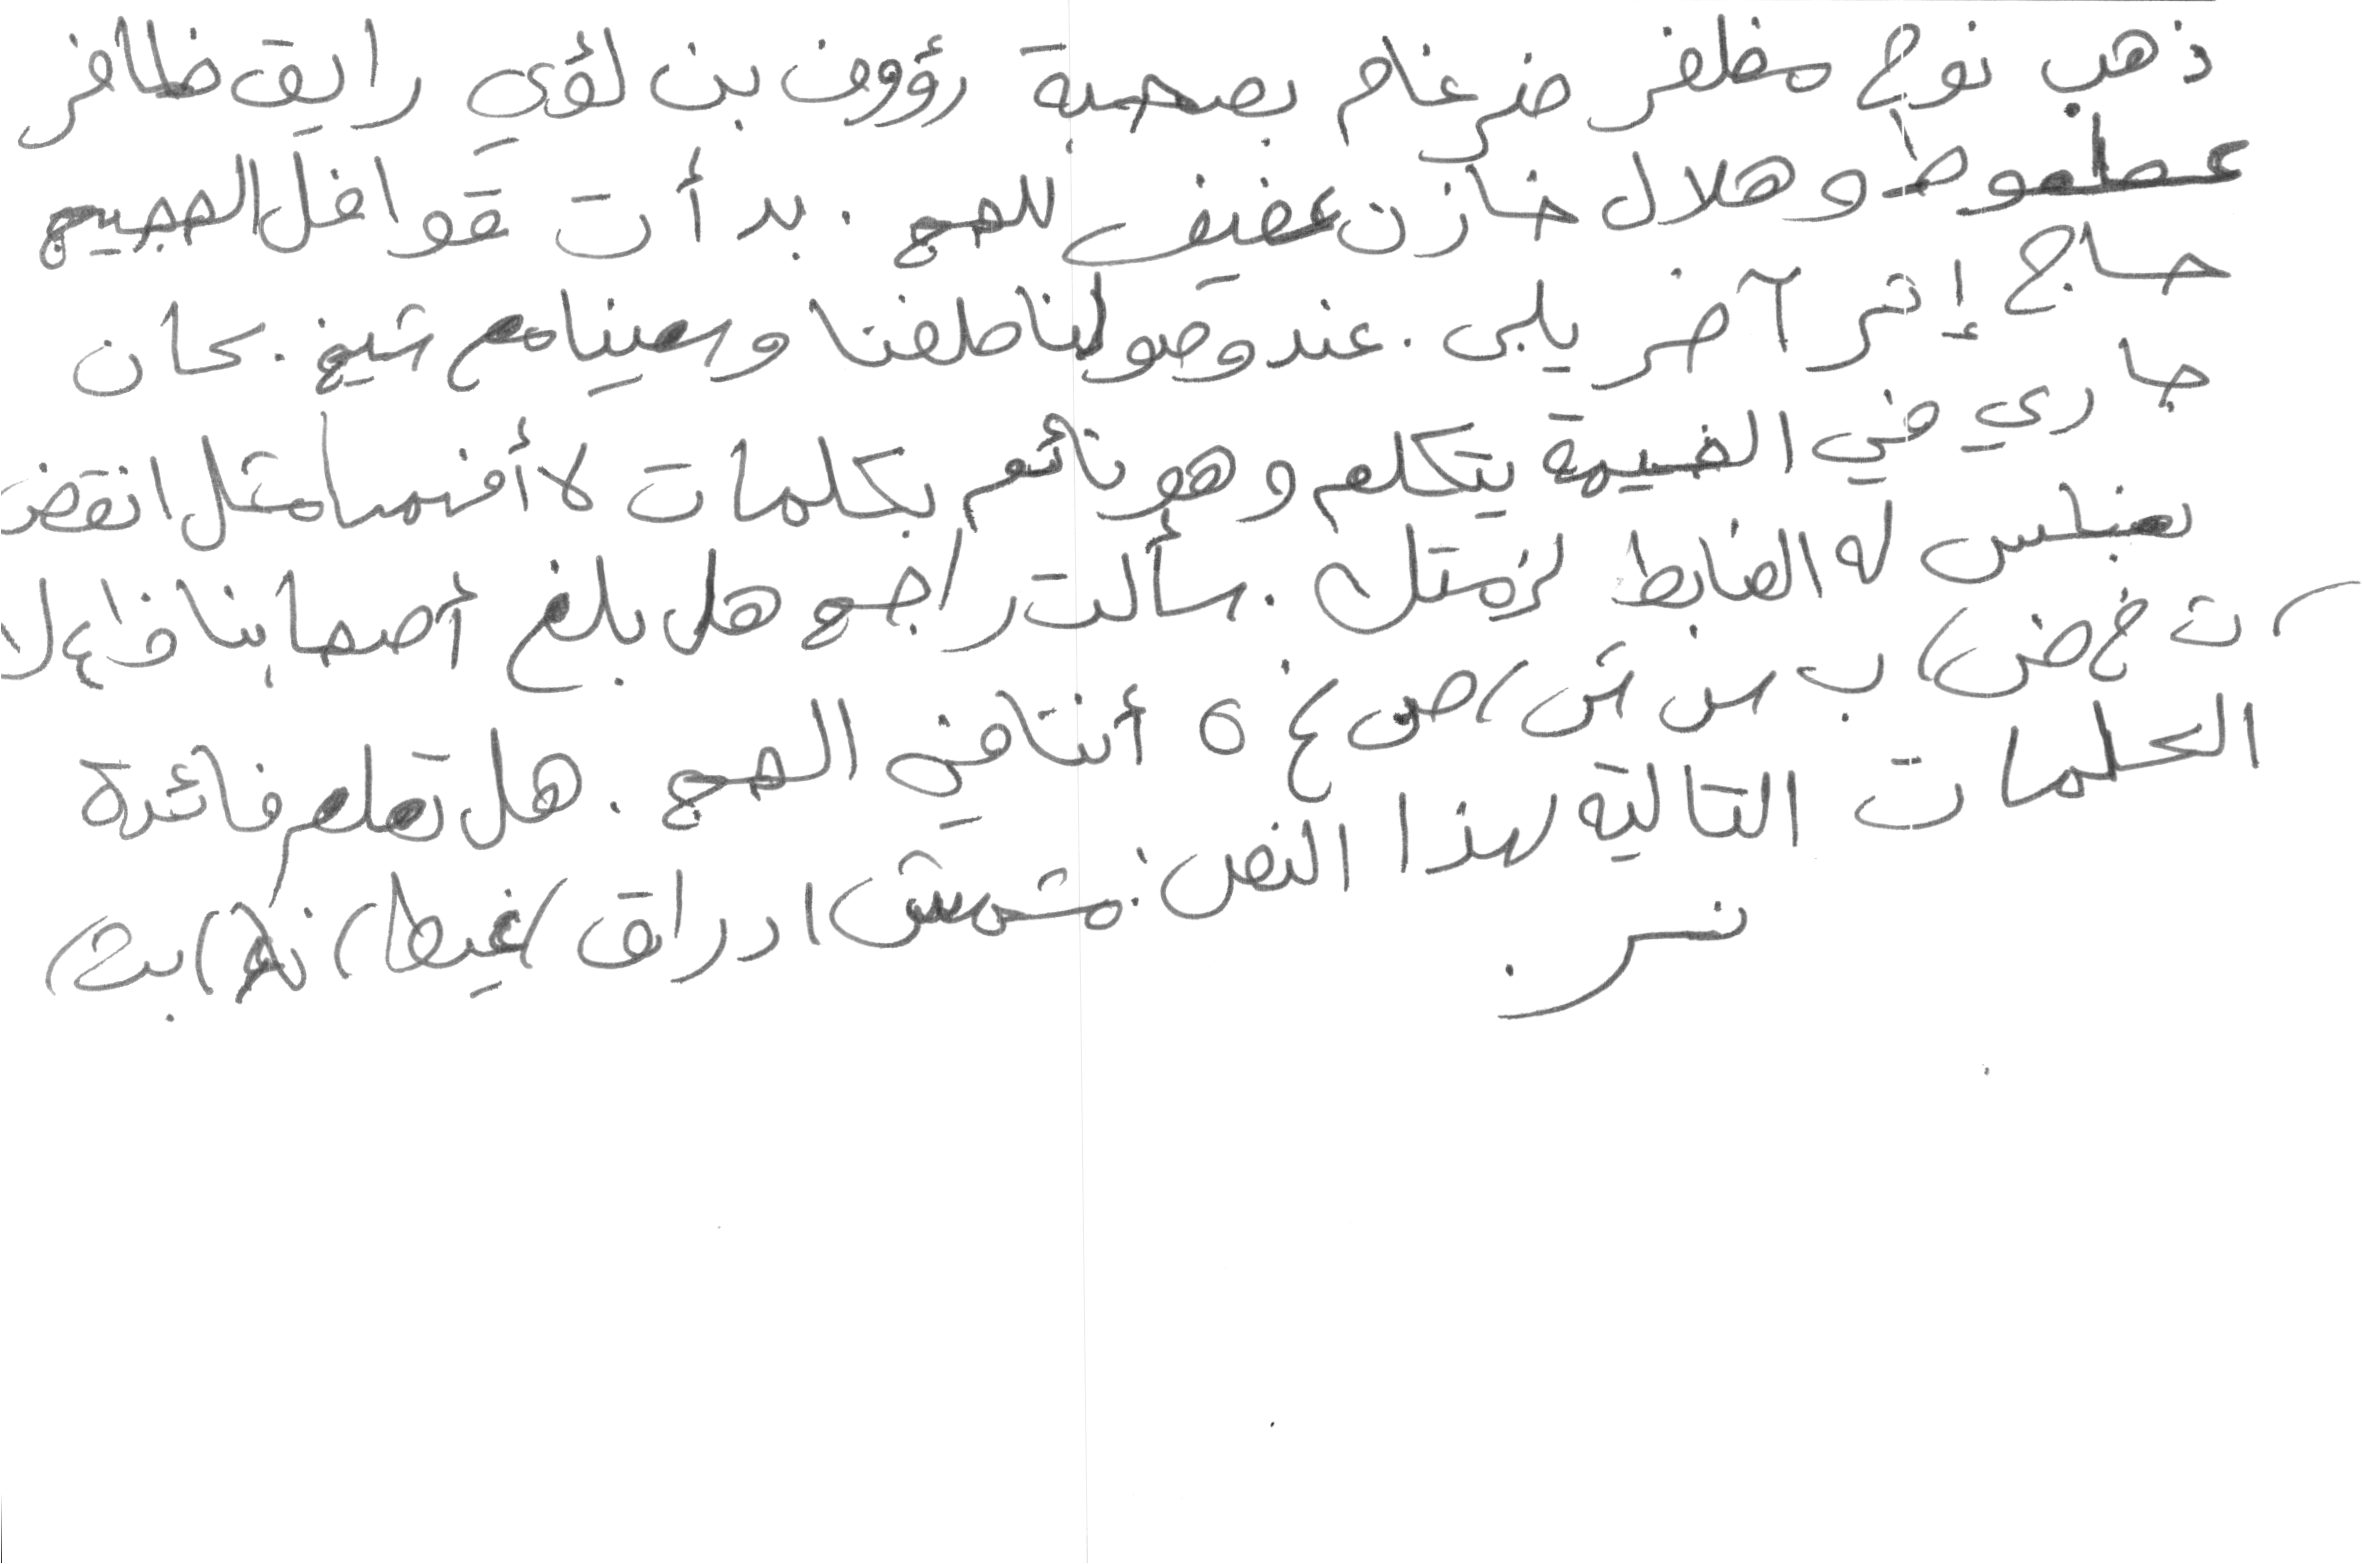 ذهب نوح مظفر ضرغام بصحبة رؤوف بن لؤي رايق ظافر
عطعوط وهلال خازن عفيف للحج . بدأت قوافل الحجيج
حاج إثر آخر يلبى . عند وصولنا طلفنا وسعينا مع شيخ . كان
جاري في الخيمة يتكلم وهو نائم بكلمات لا أفهمها مثل انقض
بغبلس له الضابط لزمتك . سألت راجح هل بلغ أصحابنا
ت خ ض ، ب س ش ، ص غ ه أننا في الحج . هل تعلم فائدة
الكلمات التالية لهذا النص : مشمش ، دراق ، غيظ ،
نسر .